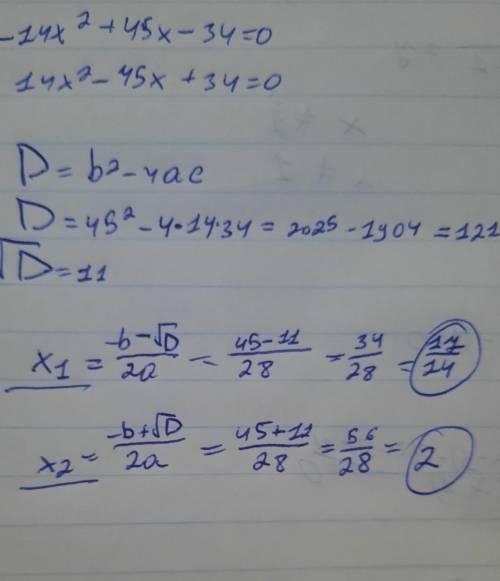 -14x²+45x-34=0
14x²-45x+34=0
D=b²-4ac
D=45²-4·14·34=2025-1904=121
√D=11
x₁=(-b-√D)/2a=(45-11)/28=34/28=17/14
x₂=(-b+√D)/2a=(45+11)/28=56/28=2